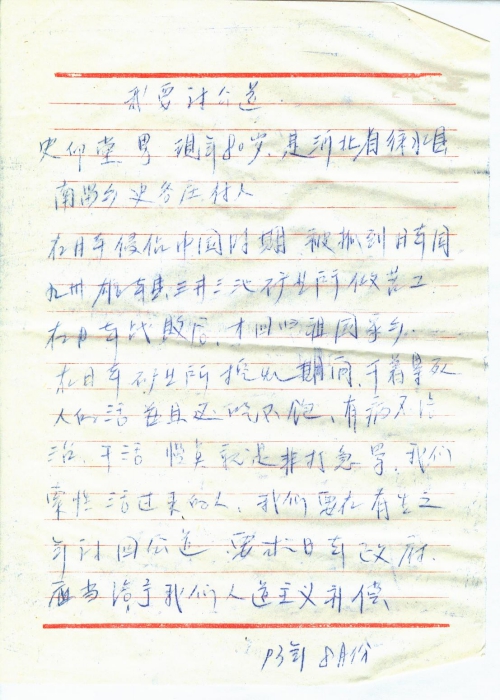 我要讨公道
史仰堂 男 现年80岁、是河北省徐水县
南留乡史各庄村人
在日本侵佔中国时期 被抓到日本国
九州 熊本县三井三池矿业所做苦工
在日本战败后、才回归祖国家乡.
在日本矿业所 期间、干着累死
人的活 并且还吃不饱、有病不给
治、干活 慢莫就是非打急骂、我们
幸性活过来的人、我们要在有生之
年讨回公道 要求日本政府.
应当给予我们人道主义补偿、
93年 8月份